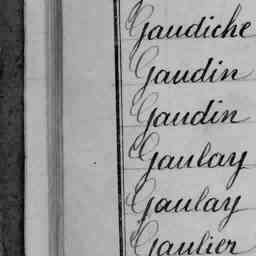 Gaudiche
Gaudin
Gaudin
Gaulay
Gaulay
Gaulier